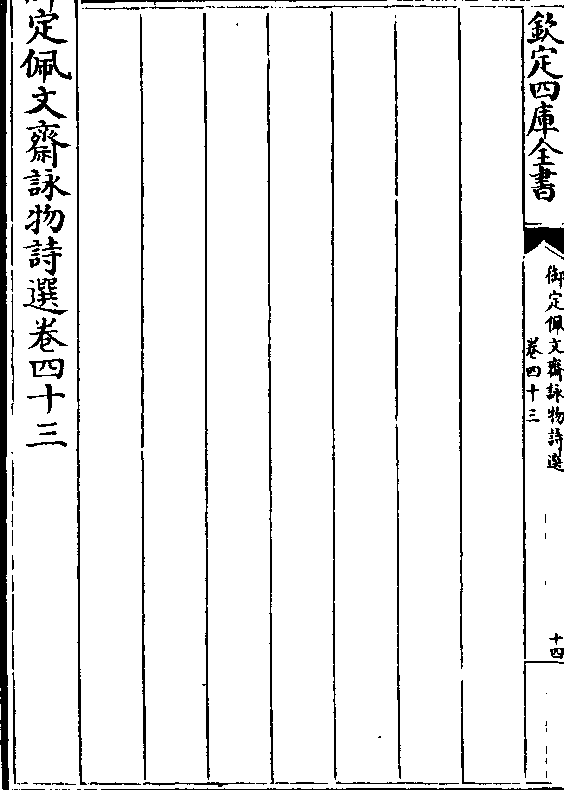 欽定四庫全書
御定佩文齋詠物詩選
卷四十三
十四
御定佩文齋詠物詩選卷四十三